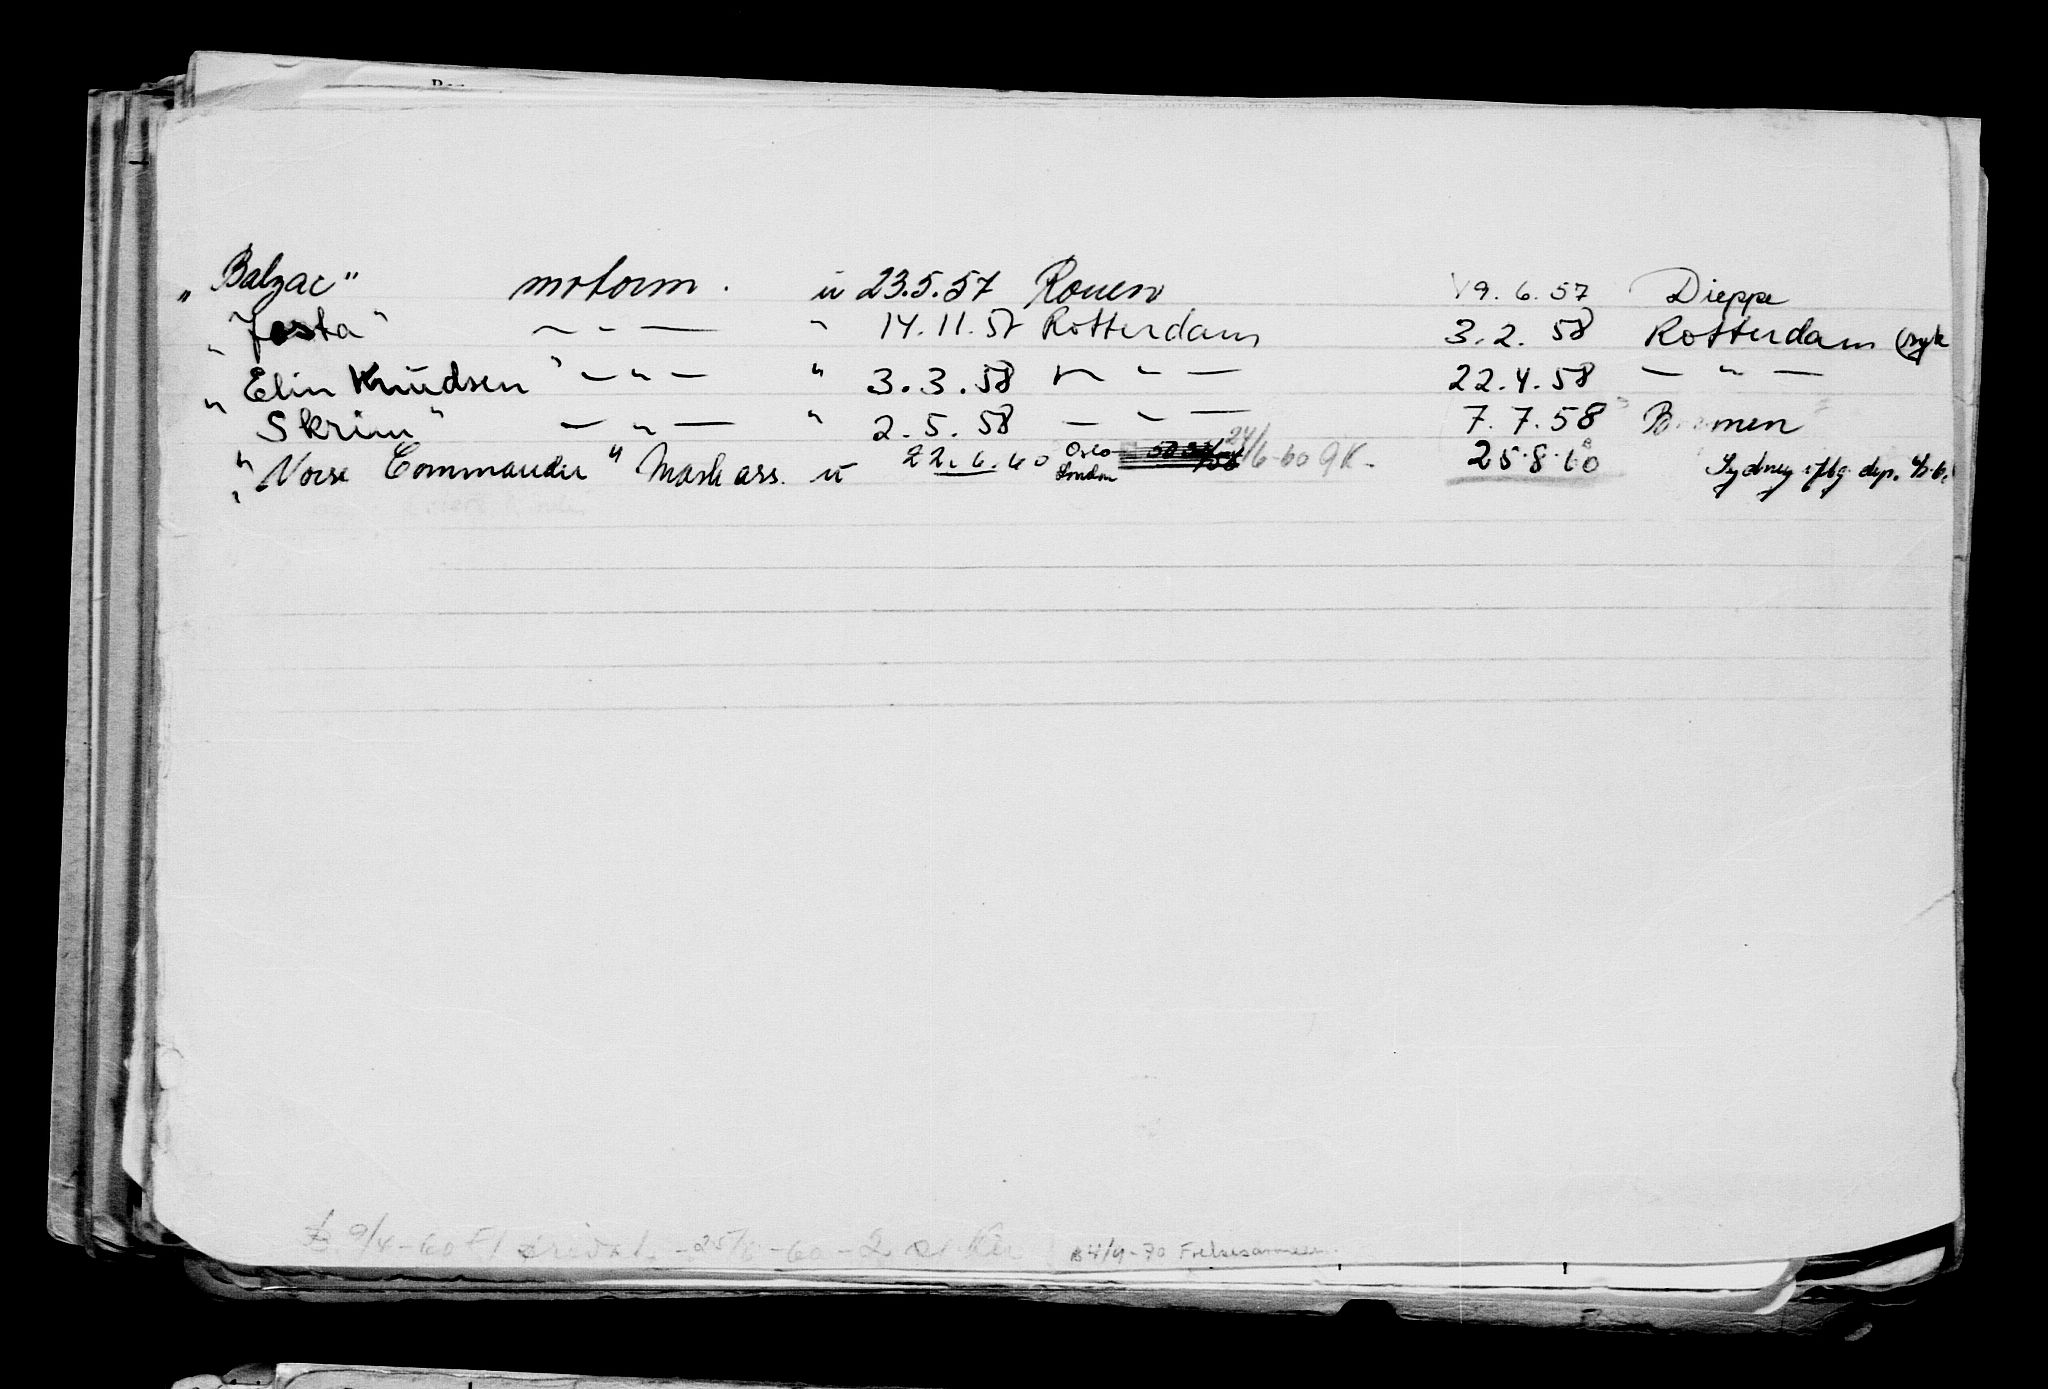 „Balzac" motorm. u 23.5.57 Rouen 19.6.57 Dieppe
„Josta" — „ — " 14.11.57 Rotterdam 3.2.58 Rotterdam (syk
„Elin Knudsen" — „ — " 3.3.58 — „ — 22.4.58 — „ —
„Skrim" — „ — " 2.5.58 — „ — 7.7.58 Bremen
„Norse Commander" Mask ass. u 22.6.60 Oslo London 24/6-60 GK. 25.8.60 Sydney dep.
9/4-60 -60-2 B 4/9-70 Frelsesarmeen.